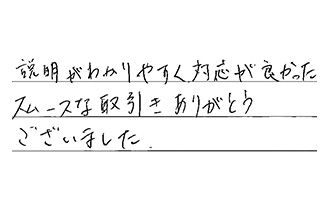 説明がわかりやすく対応が良かった
スムースな取引きありがとう
ございました.